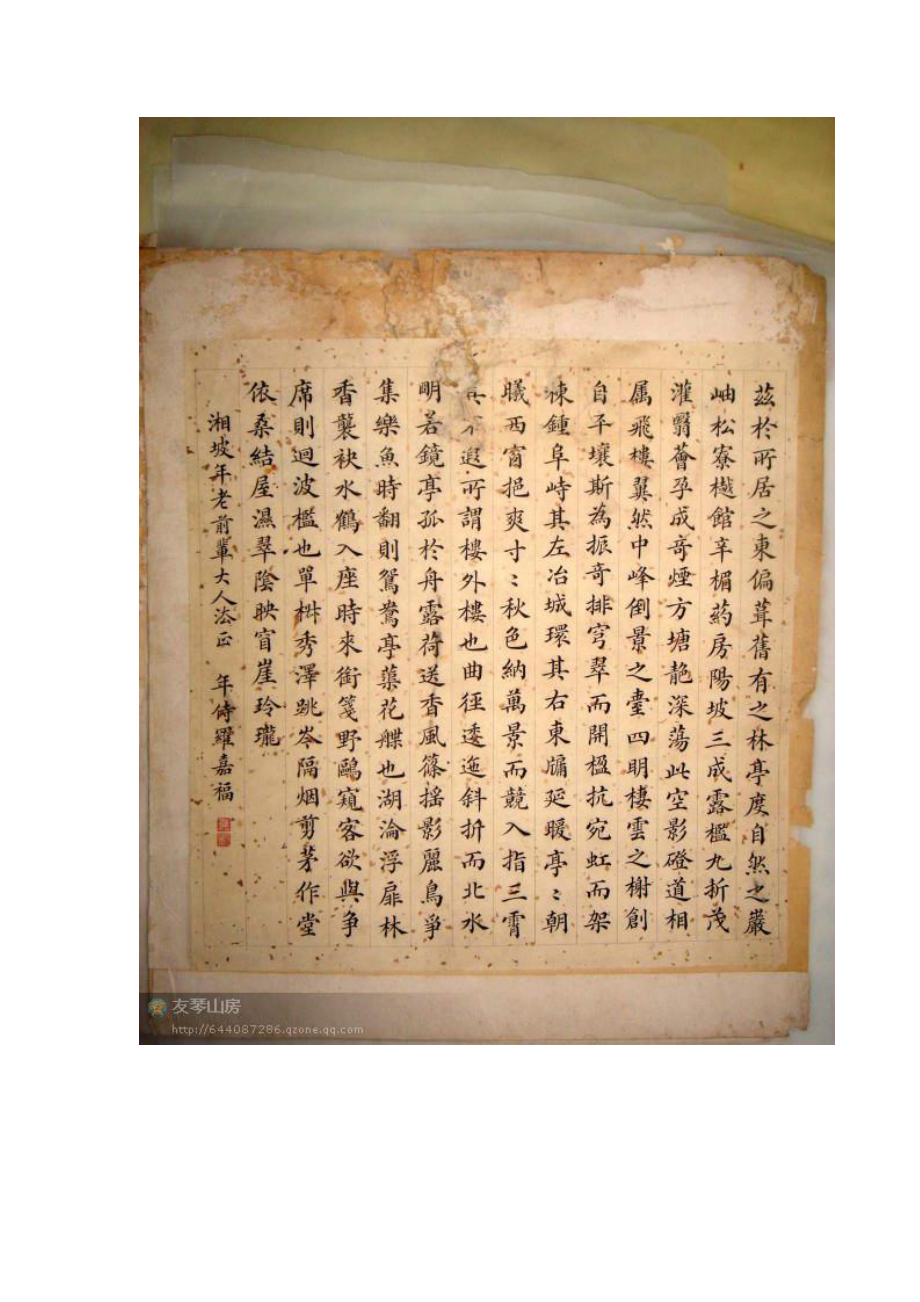 茲於所居之東偏葺舊有之林亭度自然之巖
岫松寮樾館辛楣葯房陽坡三成露檻九折茂
灌翳薈孕成奇煙方塘艶深蕩此空影磴道相
属飛樓翼然中峰倒景之臺四明棲雲之榭創
自平壤斯為振奇排穹翠而開楹抗宛虹而架
棟鍾阜峙其左冶城環其右東牖延暖亭〻朝
曦西窗挹爽寸〻秋色納萬景而競入指三霄
其不遐所謂樓外樓也曲徑逶迤斜折而北水
明若鏡亭孤於舟露荷送香風篠搖影麗鳥爭
集樂魚時翻則鴛鴦亭蕖花艓也湖淪浮扉林
香襲袂水鶴入座時來銜箋野鷗窺客欲與争
席則迴波檻也單椒秀澤跳岑隔烟剪茅作堂
依桑結屋濕翠陰映窗崖玲瓏
湘坡年老前輩大人法正 年侍羅嘉福
友琴山房
http://644087286.qzone.qq.com